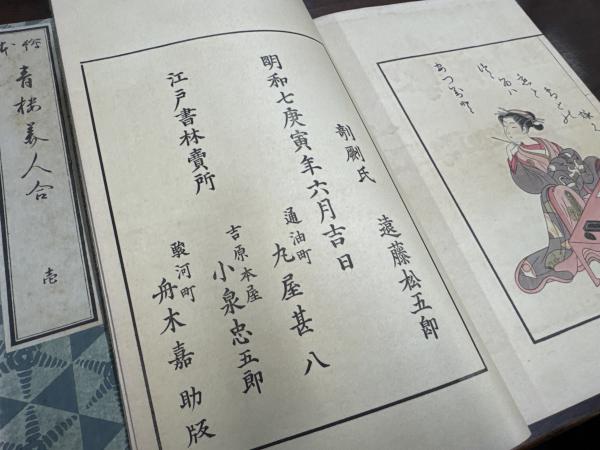 剞劂氏 遠藤松五郎
明和七庚寅年六月吉日
通油町 丸屋甚八
吉原本屋 小泉忠五郎
江戸書林賣所
駿河町 舟木嘉助版
青楼美人合
壱